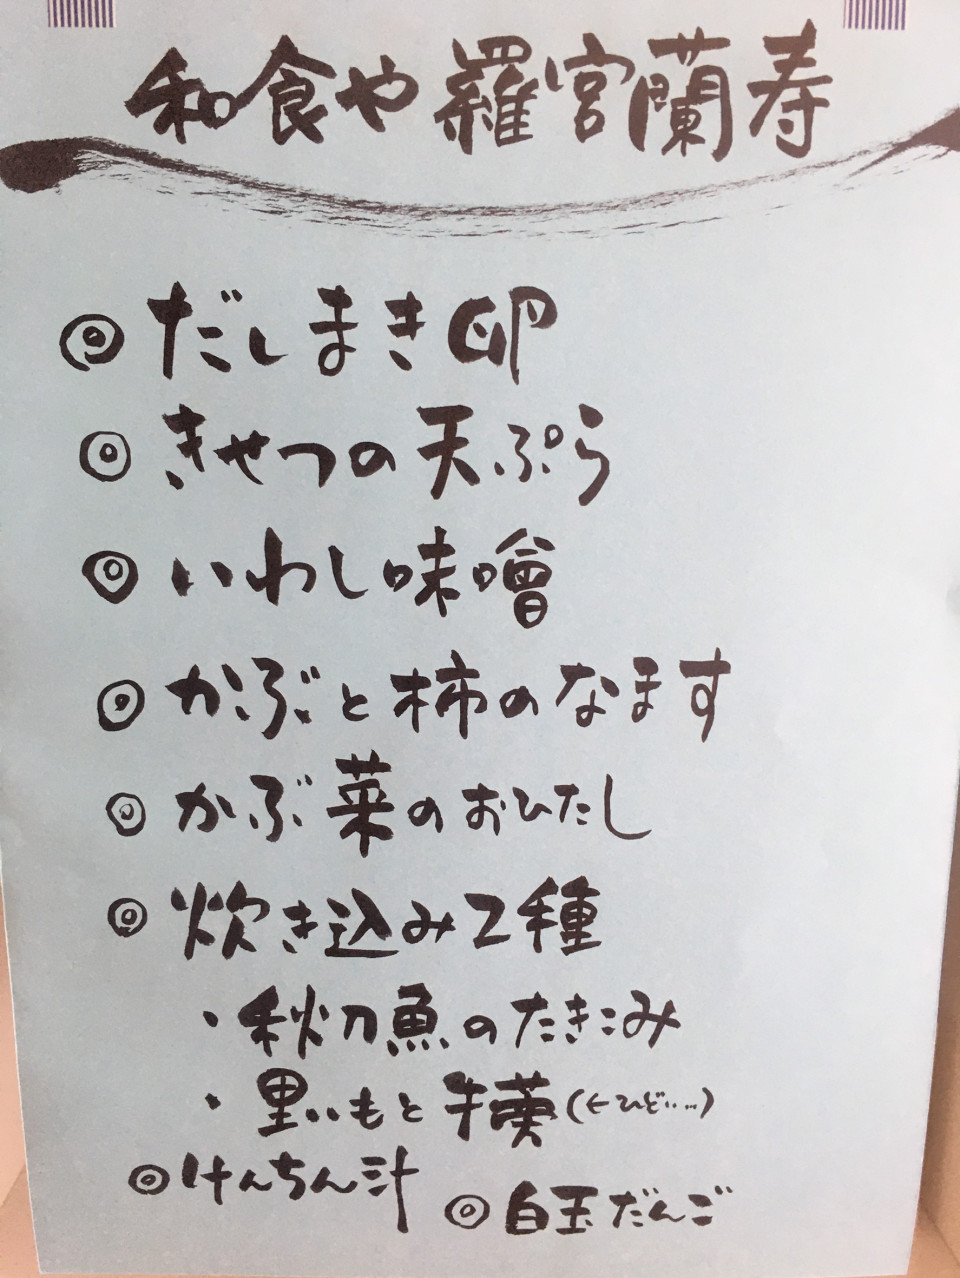 和食や 羅宮蘭寿
◎だしまき卵
◎きせつの天ぷら
◎いわし味噌
◎かぶと柿のなます
◎かぶ菜のおひたし
◎炊き込み2種
・秋刀魚のたきこみ
・里いもと牛蒡(←ひどい…)
◎けんちん汁
◎白玉だんご